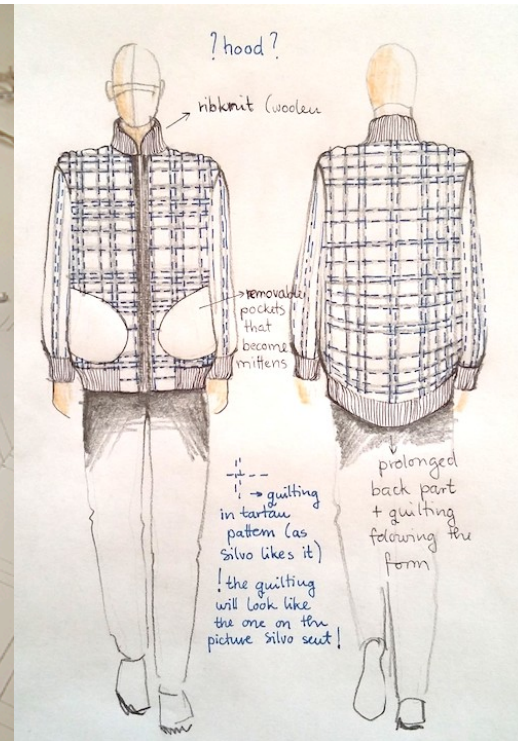 ? hood ?
ribknit (woolen
removable
pockets
that
become
mittens
→ quilting
in tartan
pattern (as
silvo likes it)
! the quilting
will look like
the one on the
picture silvo sent !
prolonged
back part
+ quilting
folowing the
form